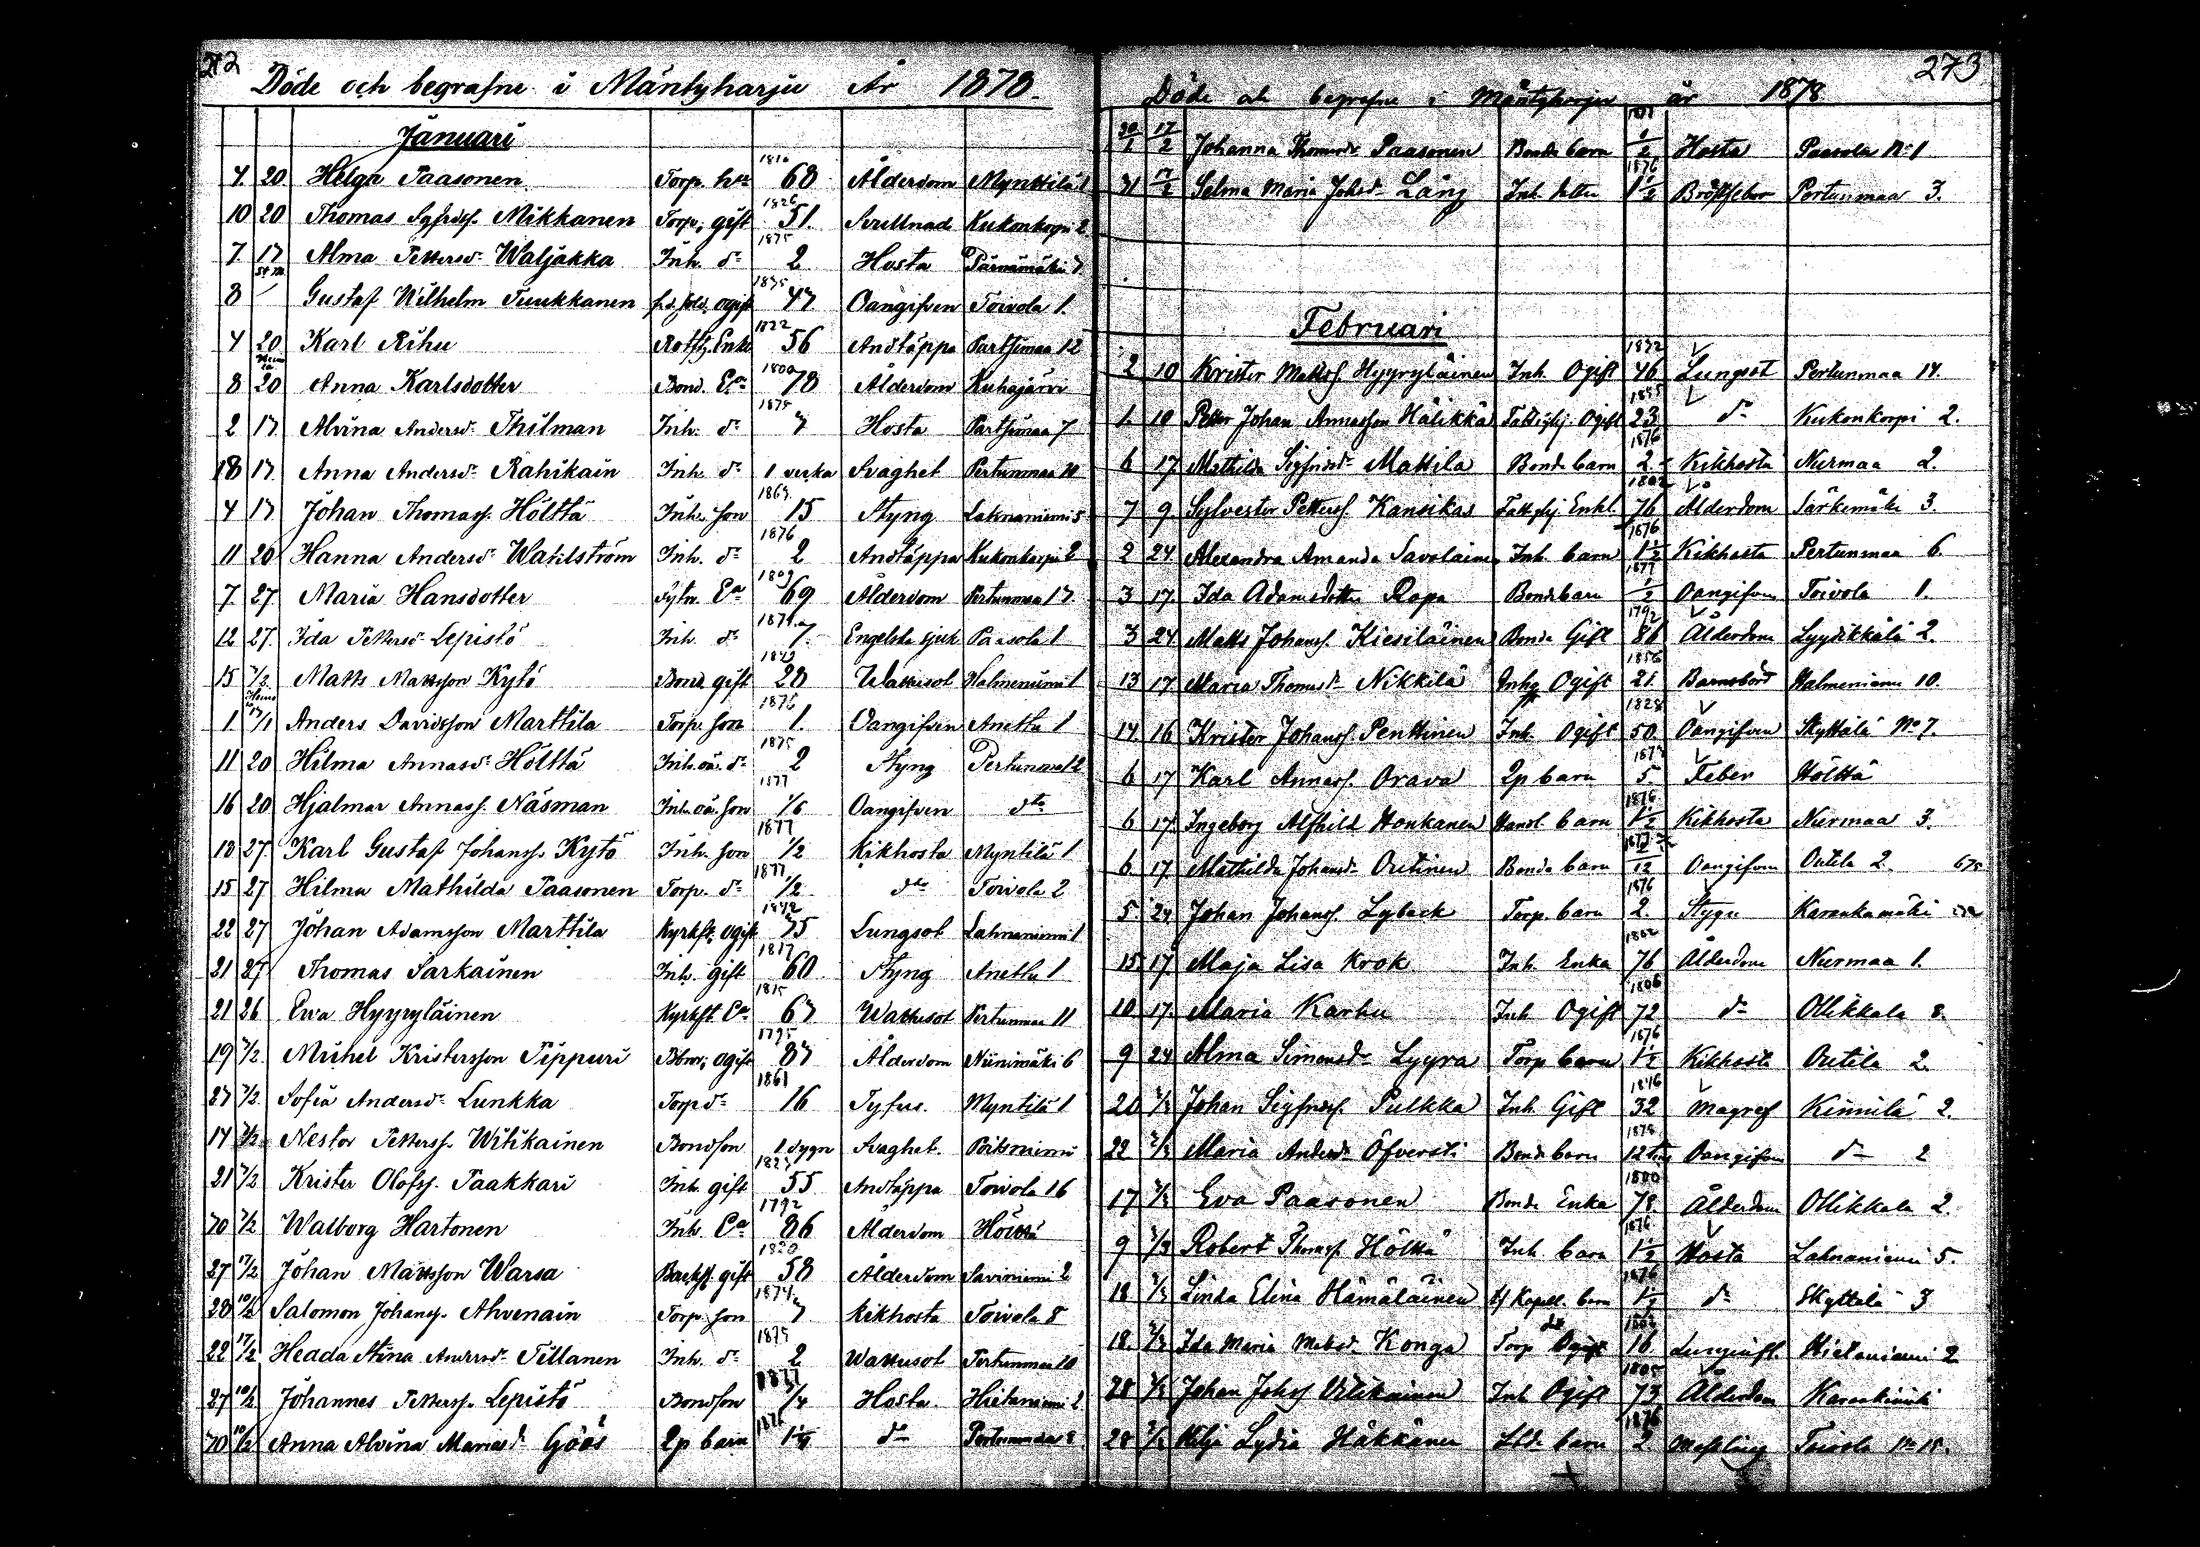 272
Döde och begrafne i Mäntyharju År 1878.
Januari
4 20 Helga Paasonen Torp. h 1810 68 Ålderdom Mynttilä 1
10 20 Thomas Sigfrdss. Mikkanen Torp. gift 1826 51. Svullnad Kukonkorpi 2
7 17 Alma Pettersdr Waljakka Inh. dr 1875 2 Hosta Pärnämäki 7
8 Gustaf Wilhelm Tuukkanen ogift 1835 47. Oangifven Toivola 1.
4 20 Karl Rihu Enkl 1822 56 Andtäppa Partsimaa 12
8 20 Anna Karlsdotter Bond. Ea 1800 78 Ålderdom Kuhajärvi
2 17 Alvina Andersdr Thilman Inh. dr 7 Hosta Partsimaa 7
18 17 Anna Andersdr Rahikain Inh. dr 1 vecka Svaghet Pertunmaa 10
4 17 Johan Thomass. Hölttä Inh. son 15 Styng Lahnaniemi 5
11 20 Hanna Andersdr Wahlström Inh. dr 1876 2 Andtäppa Kukonkorpi 2
7 27 Maria Hansdotter Sytn. Ea 1809 69 Ålderdom Pertunmaa 17
12 27 Ida Pettersdr Lepistö Inh. dr 7 Engelska sjuk Paasola 1
15 3/2 Matts Mattsson Kytö Bond. gift 28 Wattusot Halmeniemi 1
1 17/1 Anders Davidsson Marttila Torp. son 1876 1. Oangifven Anetta 1
11 20 Hilma Annasdr Hölttä Inh. oä. dr 1875 2 Styng Pertunmaa 12
16 20 Hjalmar Annass. Näsman Inh. oä. son 1877 1/6 Oangifven dto
18 27 Karl Gustaf Johanss. Kytö Inh. son 1877 1/2 Kikhosta Myntilä 1
15 27 Hilma Mathilda Paasonen Torp. dr 1877 1/2 dto Toivola 2
22 27 Johan Adamsson Marttila ogift 1842 Lungsot Lahnaniemi 1
21 27 Thomas Sarkainen Inh. gift 1817 60 Styng Anetta 1
21 26 Eva Hyyryläinen Ea 1815 67 Wattusot Pertunmaa 11
19 3/2 Michel Kristersson Pippuri ogift 1795 87 Ålderdom Niinimäki 6
27 3/2 Sofia Andersdr Lunkka Torp dr 1861 16 Tyfus. Myntilä 1
14 3/2 Nestor Petterss. Witikainen Bondson 1 dygn Svaghet.
21 3/2 Krister Olofss. Paakkari Inh. gift 1823 55 Andtäppa Toivola 16
20 3/2 Walborg Hartonen Inh. Ea 1792 86 Ålderdom Hölttä
27 17/2 Johan Mattsson Warsa gift 1820 58 Ålderdom Saviniemi 2
28 10/2 Salomon Johanss. Ahvenain Torp. son 1874 7 Kikhosta Toivola 8
22 17/2 Hedda Stina Andersdr Tillanen Inh. dr 1875 2 Wattusot Pertunmaa 10
27 10/2 Johannes Petterss. Lepistö Bondson 1877 1/4 Hosta Hietaniemi 2
20 10/2 Anna Alvina Mariasd. Göös Lp barn 1876 dr Pertunmaa 8
273
Döde och begrafne i Mäntyharju år 1878
30/1 17/2 Johanna Thomasdr Paasonen Bonde barn 1877 1/2 Hosta Paasola No 1
31 17/2 Selma Maria Johsdr Lång Inh. dotter 1876 1 1/2 Bröstfeber Pertunmaa 3.
Februari
2 10 Krister Mattss. Hyyryläinen Inh. Ogift 1832 46 Lungsot Pertunmaa 14.
1. 10 Petter Johan Annasson Hälikkä Fattighj. Ogift 1855 23 dr Kukonkorpi 2.
6 17 Mathilda Sigfridsdr Mattila Bonde barn 1876 2 Kikhosta Nurmaa 2.
7 9 Sylvester Petterss. Kansikas Fattghj Enkl. 1802 76 Ålderdom Särkemäki 3.
2 24 Alexandra Amanda Savolainen Inh. barn 1876 1 1/2 Kikhosta Pertunmaa 6
3 17. Ida Adamsdotter Ropa Bonde barn 1877 1/2 Oangifven Toivola 1.
3 24 Matts Johanss. Kiesiläinen Bonde Gift 1792 86 Ålderdom Lyydikkälä 2.
13 17 Maria Thomasdr Nikkilä Inhg Ogift 1856 21. Barnsbörd Halmeniemi 10.
14. 16 Krister Johanss. Penttinen Inh. Ogift 1828 50. Oangifven Skyttälä No 7.
6 17 Karl Annass. Orava Lp barn 1873 5 Feber Hölttä
6 17. Ingeborg Alfhild Honkanen Handl. barn 1876 1 1/2 Kikhosta Nurmaa 3.
6 17 Mathilda Johansdr Outinen Bonde barn 1877 2/12 Oangifven Outila 2.
5 24 Johan Johanss. Lyback Torp. barn 1876 2. Styng Karankamäki
15 17 Maja Lisa Krok Inh. Enka 1802 76 Ålderdom Nurmaa 1.
10 17. Maria Karhu Inh Ogift 1806 72 dr Ollikkala 8.
9 24 Alma Simonsdr Lyyra Torp barn 1876 1 1/2 Kikhosta Outila 2.
20 3/3 Johan Sigfridss. Pulkka Inh. Gift 1846 32 Magref Kinnilä 2.
22 3/3 Maria Andersdr Öfversti Bonde barn 1878 12 tim Oangifven dr 2
17 3/3 Eva Paasonen Bonde Enka 1800 78. Ålderdom Ollikkala 2.
9 3/3 Robert Thomass. Hölttä Inh. barn 1876 1 1/2 Hosta Lahnaniemi 5.
18 3/3 Linda Elina Hämäläinen Kapell. barn 1876 1 1/2 dr Skyttälä 3
18. 3/3 Ida Maria Matsdr Konga Torp dr 1862 16 Lunginfl. Hietaniemi 2
28 3/3 Johan Johss Vitikainen Inh Ogift 1805 73 Ålderdom
28 3/3 Hilja Lydia Häkkänen barn 1876 2 Messling Toivola No 15.